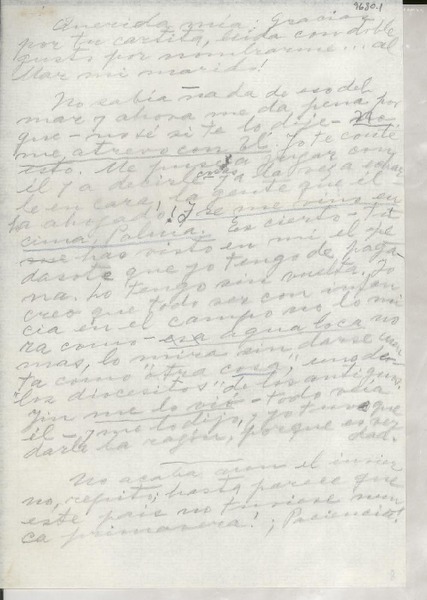 9680.1
Querida mía: Gracias
por tu cartita, leída con doble
gusto por nombrarme... al
Mar mi marido!
No sabía nada de eso del
mar y ahora me da pena por
que - no sé si te lo dije - No
me atrevo con él. Yo te conté
esto. Me puse a jugar con
él y a decirle - a la vez
le en cara, la gente que él
ha ahogado! ¡Y se me vino en
cima, Coluia. Es cierto - tú
me has visto en mí el pe
dasote que yo tengo de paga
na. Lo tengo sin vuelta. Yo
creo que todo ser con infan
cia en el campo no lo mi
ra como esa agua loca no
mas, lo mira sin darse cuen
ta como "otra cosa", uno de
"los diocesitos" de los antiguos.
Yin me lo vio - todo veía
él - y me lo dijo, y yo tuve que
darle la razón, porque es ver
dad.
No acaba aun el invier
no, repito; hasta parece que
este país no tuviese nun
ca primavera! ¡Paciencia!